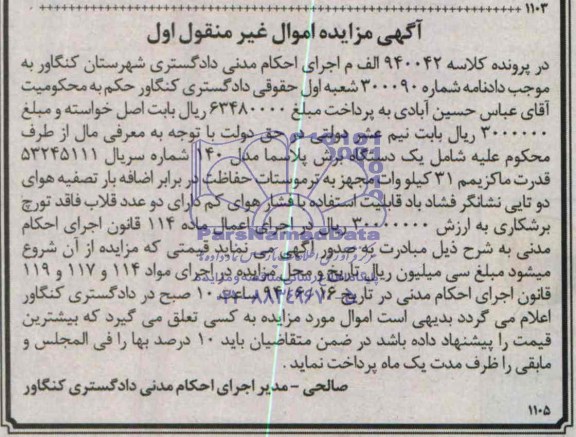 ۱۱۰۳
آگهی مزایده اموال غیر منقول اول
در پرونده کلاسه ۹۴۰۰۴۲ الف م اجرای احکام مدنی دادگستری شهرستان کنگاور به
موجب دادنامه شماره ۳۰۰۰۹۰ شعبه اول حقوقی دادگستری کنگاور حکم به محکومیت
آقای عباس حسین آبادی به پرداخت مبلغ ۶۳۴۸۰۰۰۰ ریال بابت اصل خواسته و مبلغ
۳۰۰۰۰۰۰ ریال بابت نیم عشر دولتی در حق دولت با توجه به معرفی مال از طرف
محکوم علیه شامل یک دستگاه برش پلاسما مدل ۱۴۰ شماره سریال ۵۳۲۴۵۱۱۱
قدرت ماکزیمم ۳۱ کیلو وات مجهز به ترموستات حفاظت در برابر اضافه بار تصفیه هوای
دو تایی نشانگر فشاد باد قابلیت استفاده با فشار هوای کم دارای دو عدد قلاب فاقد تورچ
برشکاری به ارزش ۳۰۰۰۰۰۰۰ ریال در اجرای اعمال ماده ۱۱۴ قانون اجرای احکام
مدنی به شرح ذیل مبادرت به صدور آگهی می نماید قیمتی که مزایده از آن شروع
میشود مبلغ سی میلیون ریال تاریخ و محل مزایده در اجرای مواد ۱۱۴ و ۱۱۷ و ۱۱۹
قانون اجرای احکام مدنی در تاریخ ۹۴/۰۶/۱۶ ساعت ۱۰ صبح در دادگستری کنگاور
اعلام می گردد بدیهی است اموال مورد مزایده به کسی تعلق می گیرد که بیشترین
قیمت را پیشنهاد داده باشد در ضمن متقاضیان باید ۱۰ درصد بها را فی المجلس و
مابقی را ظرف مدت یک ماه پرداخت نماید.
صالحی - مدیر اجرای احکام مدنی دادگستری کنگاور
۱۱۰۵
ParsNamadData